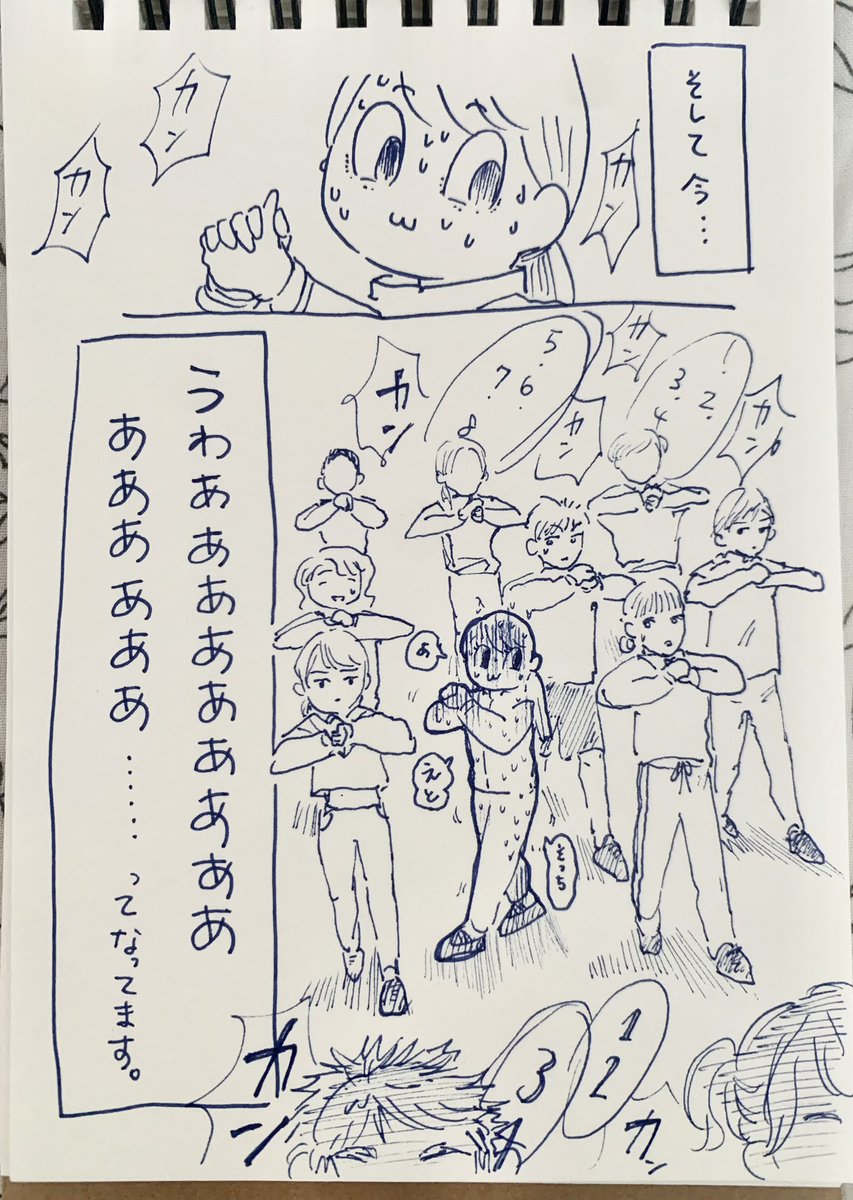 そして今…
カン
カン
カン
1.
2.
3.
4
カン
カン
5.
6.
7.
カン
カン
うわぁああああああああ
ああああああ……ってなってます。
あ
えと
こっち
1
2
3
カン
カン